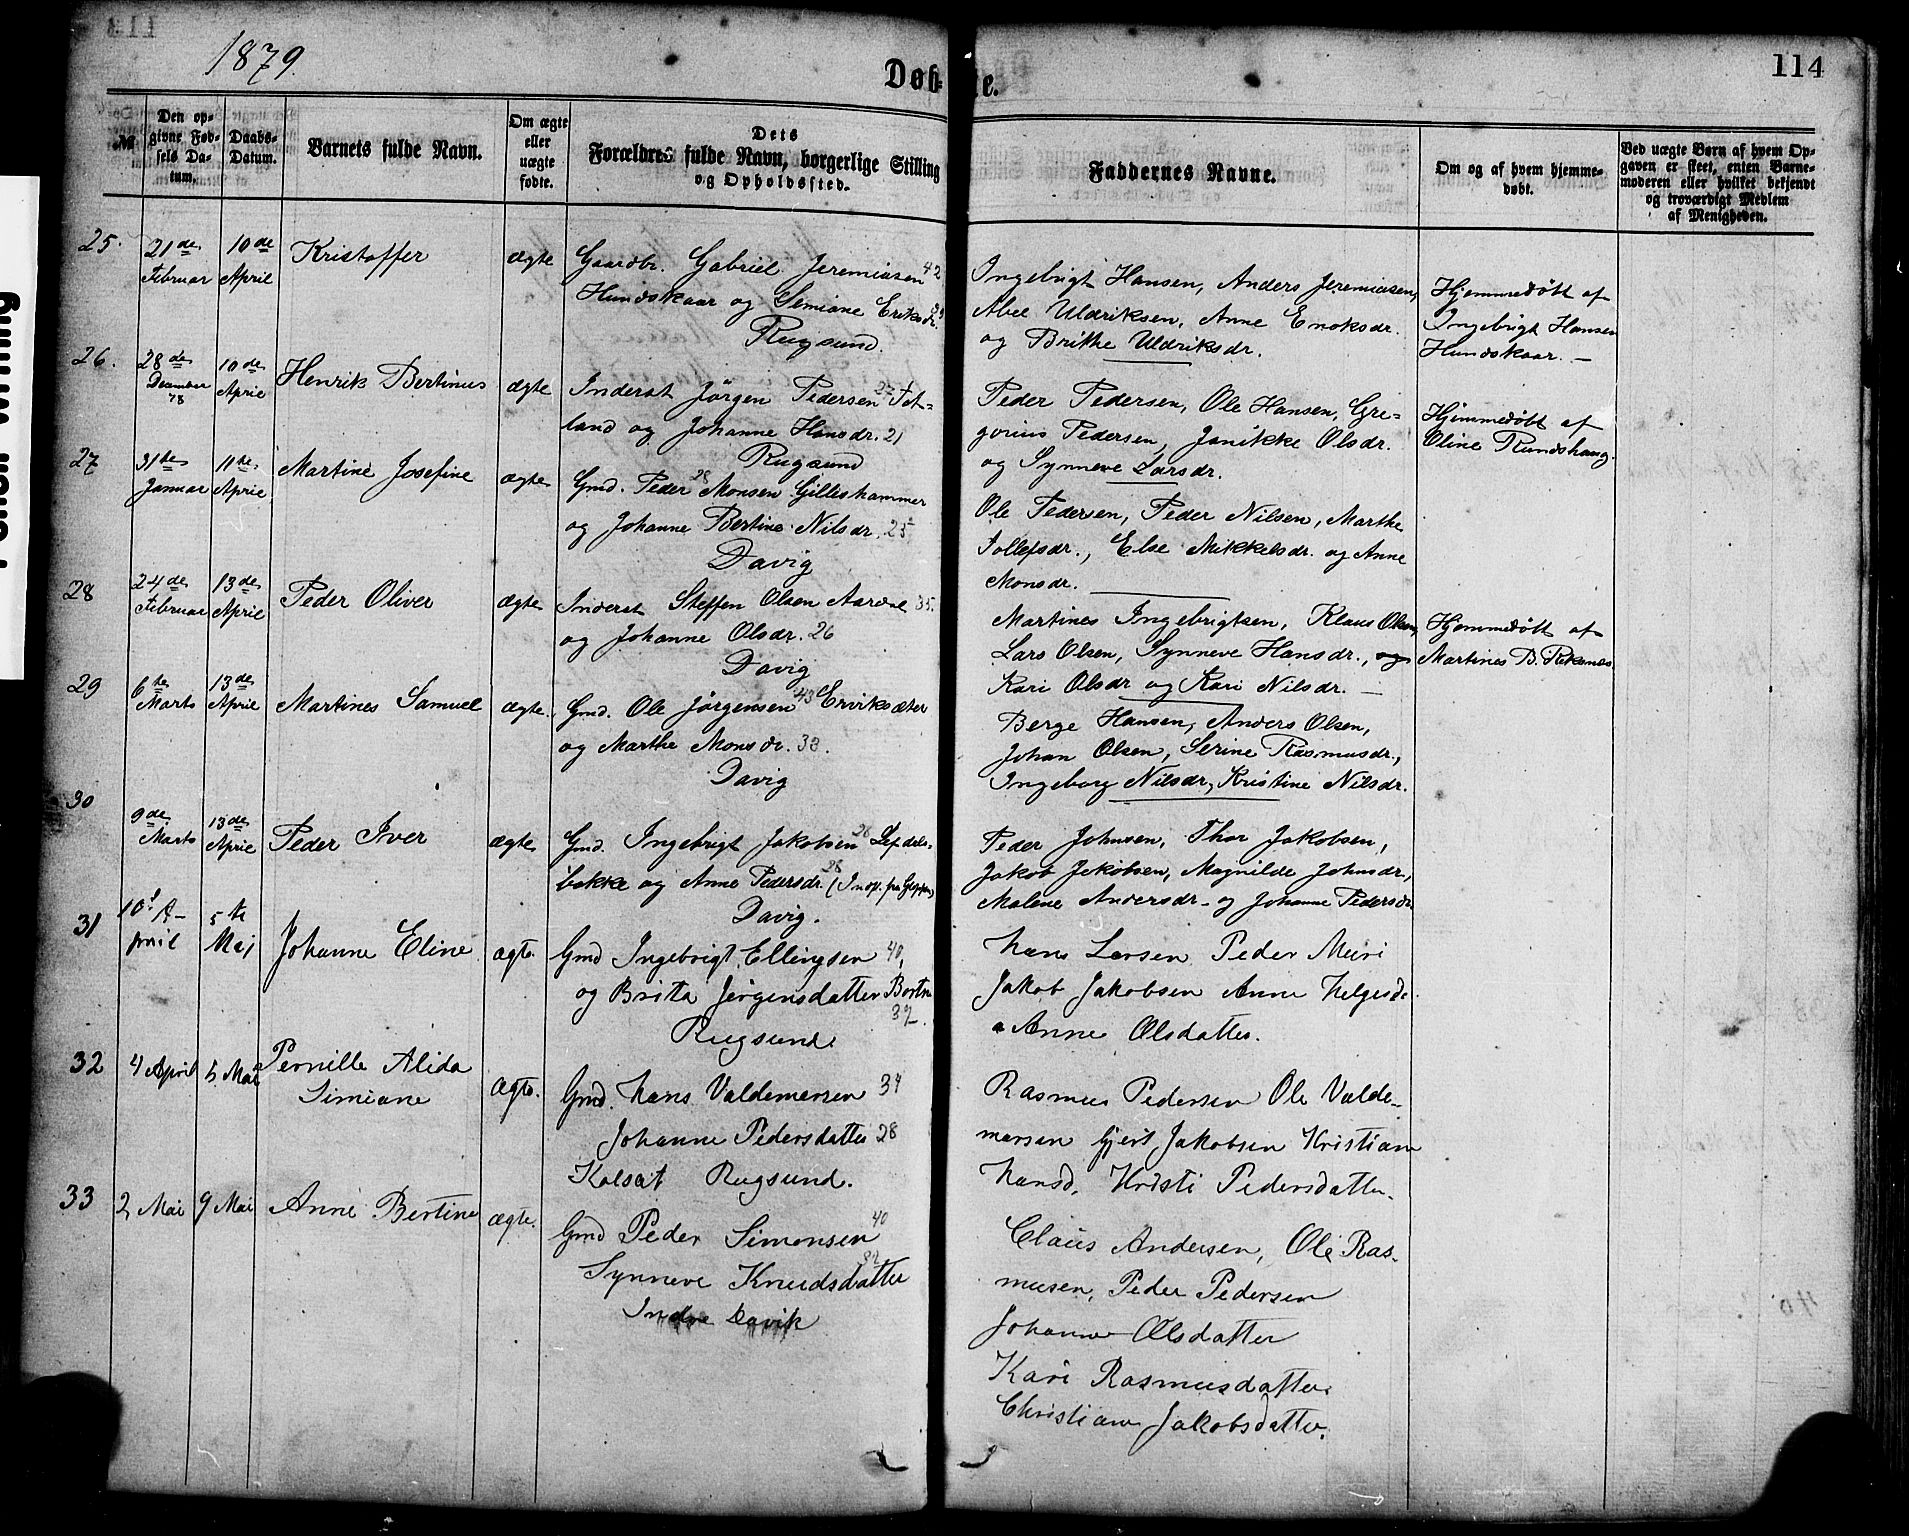 1879
114
Døbte.
№
Den op-
givne Fød-
sels Da-
tum.
Daabs-
Datum.
Barnets fulde Navn.
Om ægte
eller
uægte
fødte.
Dets
Forældres fulde Navn, borgerlige Stilling
og Opholdssted.
Faddernes Navne.
Om og af hvem hjemme-
døbt.
Ved uægte Børn af hvem Op-
gaven er skeet, enten Barne-
moderen eller hvilket bekjendt
og troværdigt Medlem
af Menigheden.
25.
21de
Februar
10de
April
Kristoffer
ægte
Gaardbr. Gabriel Jeremiasen 42
Hundskaar og Semiane Eriksdr.
Rugsund.
Ingebrigt Hansen, Anders Jeremiasen,
Abel Uldriksen, Anne Enoksdr.
og Brithe Uldriksdr.
Hjemmedøbt af
Ingebrigt Hansen
Hundskaar. —
26.
28de
December
78
10de
April
Henrik Bertinus
ægte
Inderst Jörgen Pedersen 27
land og Johanne Hansdr. 21
Rugsund
Peder Pedersen, Ole Hansen, Gre-
gorius Pedersen, Janikke Olsdr.
og Synneve Larsdr.
Hjemmedøbt af
Oline Rundshaug.
27
31te
Januar
11te
April
Martine Josefine
ægte
Gmd. Peder 28 Monsen Gilleshammer
og Johanne Bertine Nilsdr. 25
Davig
Ole Pedersen, Peder Nilsen, Marthe
Tollefsdr., Else Mikkelsdr. og Anne
Monsdr.
28
24de
Februar
13de
April
Peder Oliver
ægte
Inderst Steffen Olsen Aardal 35.
og Johanne Olsdr. 26
Davig
Martines Ingebrigtsen, Klaus Olsen,
Lars Olsen, Synneve Hansdr., og
Kari Olsdr og Kari Nilsdr. —
Hjemmedøbt af
Martines B.
29
6te
Marts
13de
April
Martines Samuel
ægte.
Gmd. Ole Jørgensen 43 Erviksæter
og Marthe Monsdr. 33.
Davig
Berge Hansen, Anders Olsen,
Johan Olsen, Serine Rasmusdr.,
Ingeborg Nilsdr, Kristine Nilsdr.
30
9de
Marts
13de
April
Peder Iver
ægte
Gmd. Ingebrigt Jakobsen 28 Lefdals-
bakke og Anne Pedersdr. 28
Davig.
Peder Johnsen, Thor Jakobsen,
Jakob Jakobsen, Magnilde Johnsdr,
Malene Andersdr - og Johanne Pedersdr
31
10. A-
pril
5te
Maj
Johanne Eline
ægte.
Gmd Ingebrigt Ellingsen 40,
og Brita Jørgensdatter Bortne
32.
Rugsund
Hans Larsen Peder Muri
Jakob Jakobsen Anne Helgesd.
a Anne Olsdatter.
32
4 April
5. Mai
Pernille Alida
Simiane
Ægte.
Gmd. Hans Valdemarsen 34
Johanne Pedersdatter 28
Kolsæt Rugsund.
Rasmus Pedersen Ole Valde-
marsen Gjert Jakobsen Kristiane
Hansd. Kristi Pedersdatter.
33
2 Mai
9 Mai
Anne Bertine
ægte.
Gmd Peder Simonsen 40
Synneve Knudsdatter 32
Indre Davik
Claus Andersen, Ole Ras-
musen, Peder Pedersen
Johanne Olsdatter
Kari Rasmusdatter
Christiane Jakobsdatter.